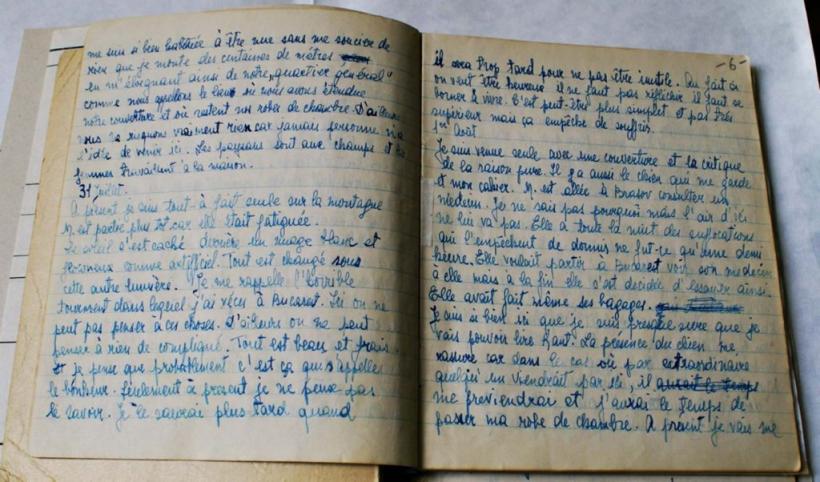 me suis si bien habituée à être nue sans me soucier de
rien que je monte des centaines de mètres
en m'éloignant ainsi de notre "quartier général"
comme nous appelons le lieu où nous avons étendu
notre couverture et où restent nos robes de chambre. D'ailleurs
nous ne risquons vraiment rien car jamais personne n'a
l'idée de venir ici. Les paysans sont aux champs et les
femmes travaillent à la maison.
31 Juillet.
A présent je suis tout à fait seule sur la montagne
M. est partie plus tôt car elle était fatiguée.
Le soleil s'est caché derrière un nuage blanc et
floconneux comme artificiel. Tout est changé sous
cette autre lumière. Je me rappelle l'horrible
tourment dans lequel j'ai vécu à Bucarest. Ici on ne
peut pas penser à ces choses. D'ailleurs on ne peut
penser à rien de compliqué. Tout est beau et frais.
Et je pense que probablement c'est ça qui s'appelle
le bonheur. Seulement à présent je ne peux pas
le savoir. Je le saurai plus tard quand
-6-
il sera trop tard pour ne pas être inutile. Au fait si
on veut être heureux il ne faut pas réfléchir il faut se
borner à vivre. C'est peut-être plus simplet et pas très
supérieur mais ça empêche de souffrir.
1er Août
Je suis venue seule avec une couverture et la critique
de la raison pure. Il y a aussi le chien qui me garde
et mon cahier. M. est allée à Brasov consulter un
médecin. Je ne sais pas pourquoi mais l'air d'ici
ne lui va pas. Elle a toute la nuit des suffocations
qui l'empêchent de dormir ne fut-ce qu'une demi
heure. Elle voulait partir à Bucarest voir son médecin
à elle mais à la fin elle s'est décidée d'essayer ainsi.
Elle avait fait même ses bagages.
Je suis si bien ici que je suis presque sure que je
vais pouvoir lire Kant. La présence du chien me
rassure car dans le cas où par extraordinaire
quelqu'un viendrait par ici, il aurait le temps
me previendrai et j'aurai le temps de
passer ma robe de chambre. A présent je vais me